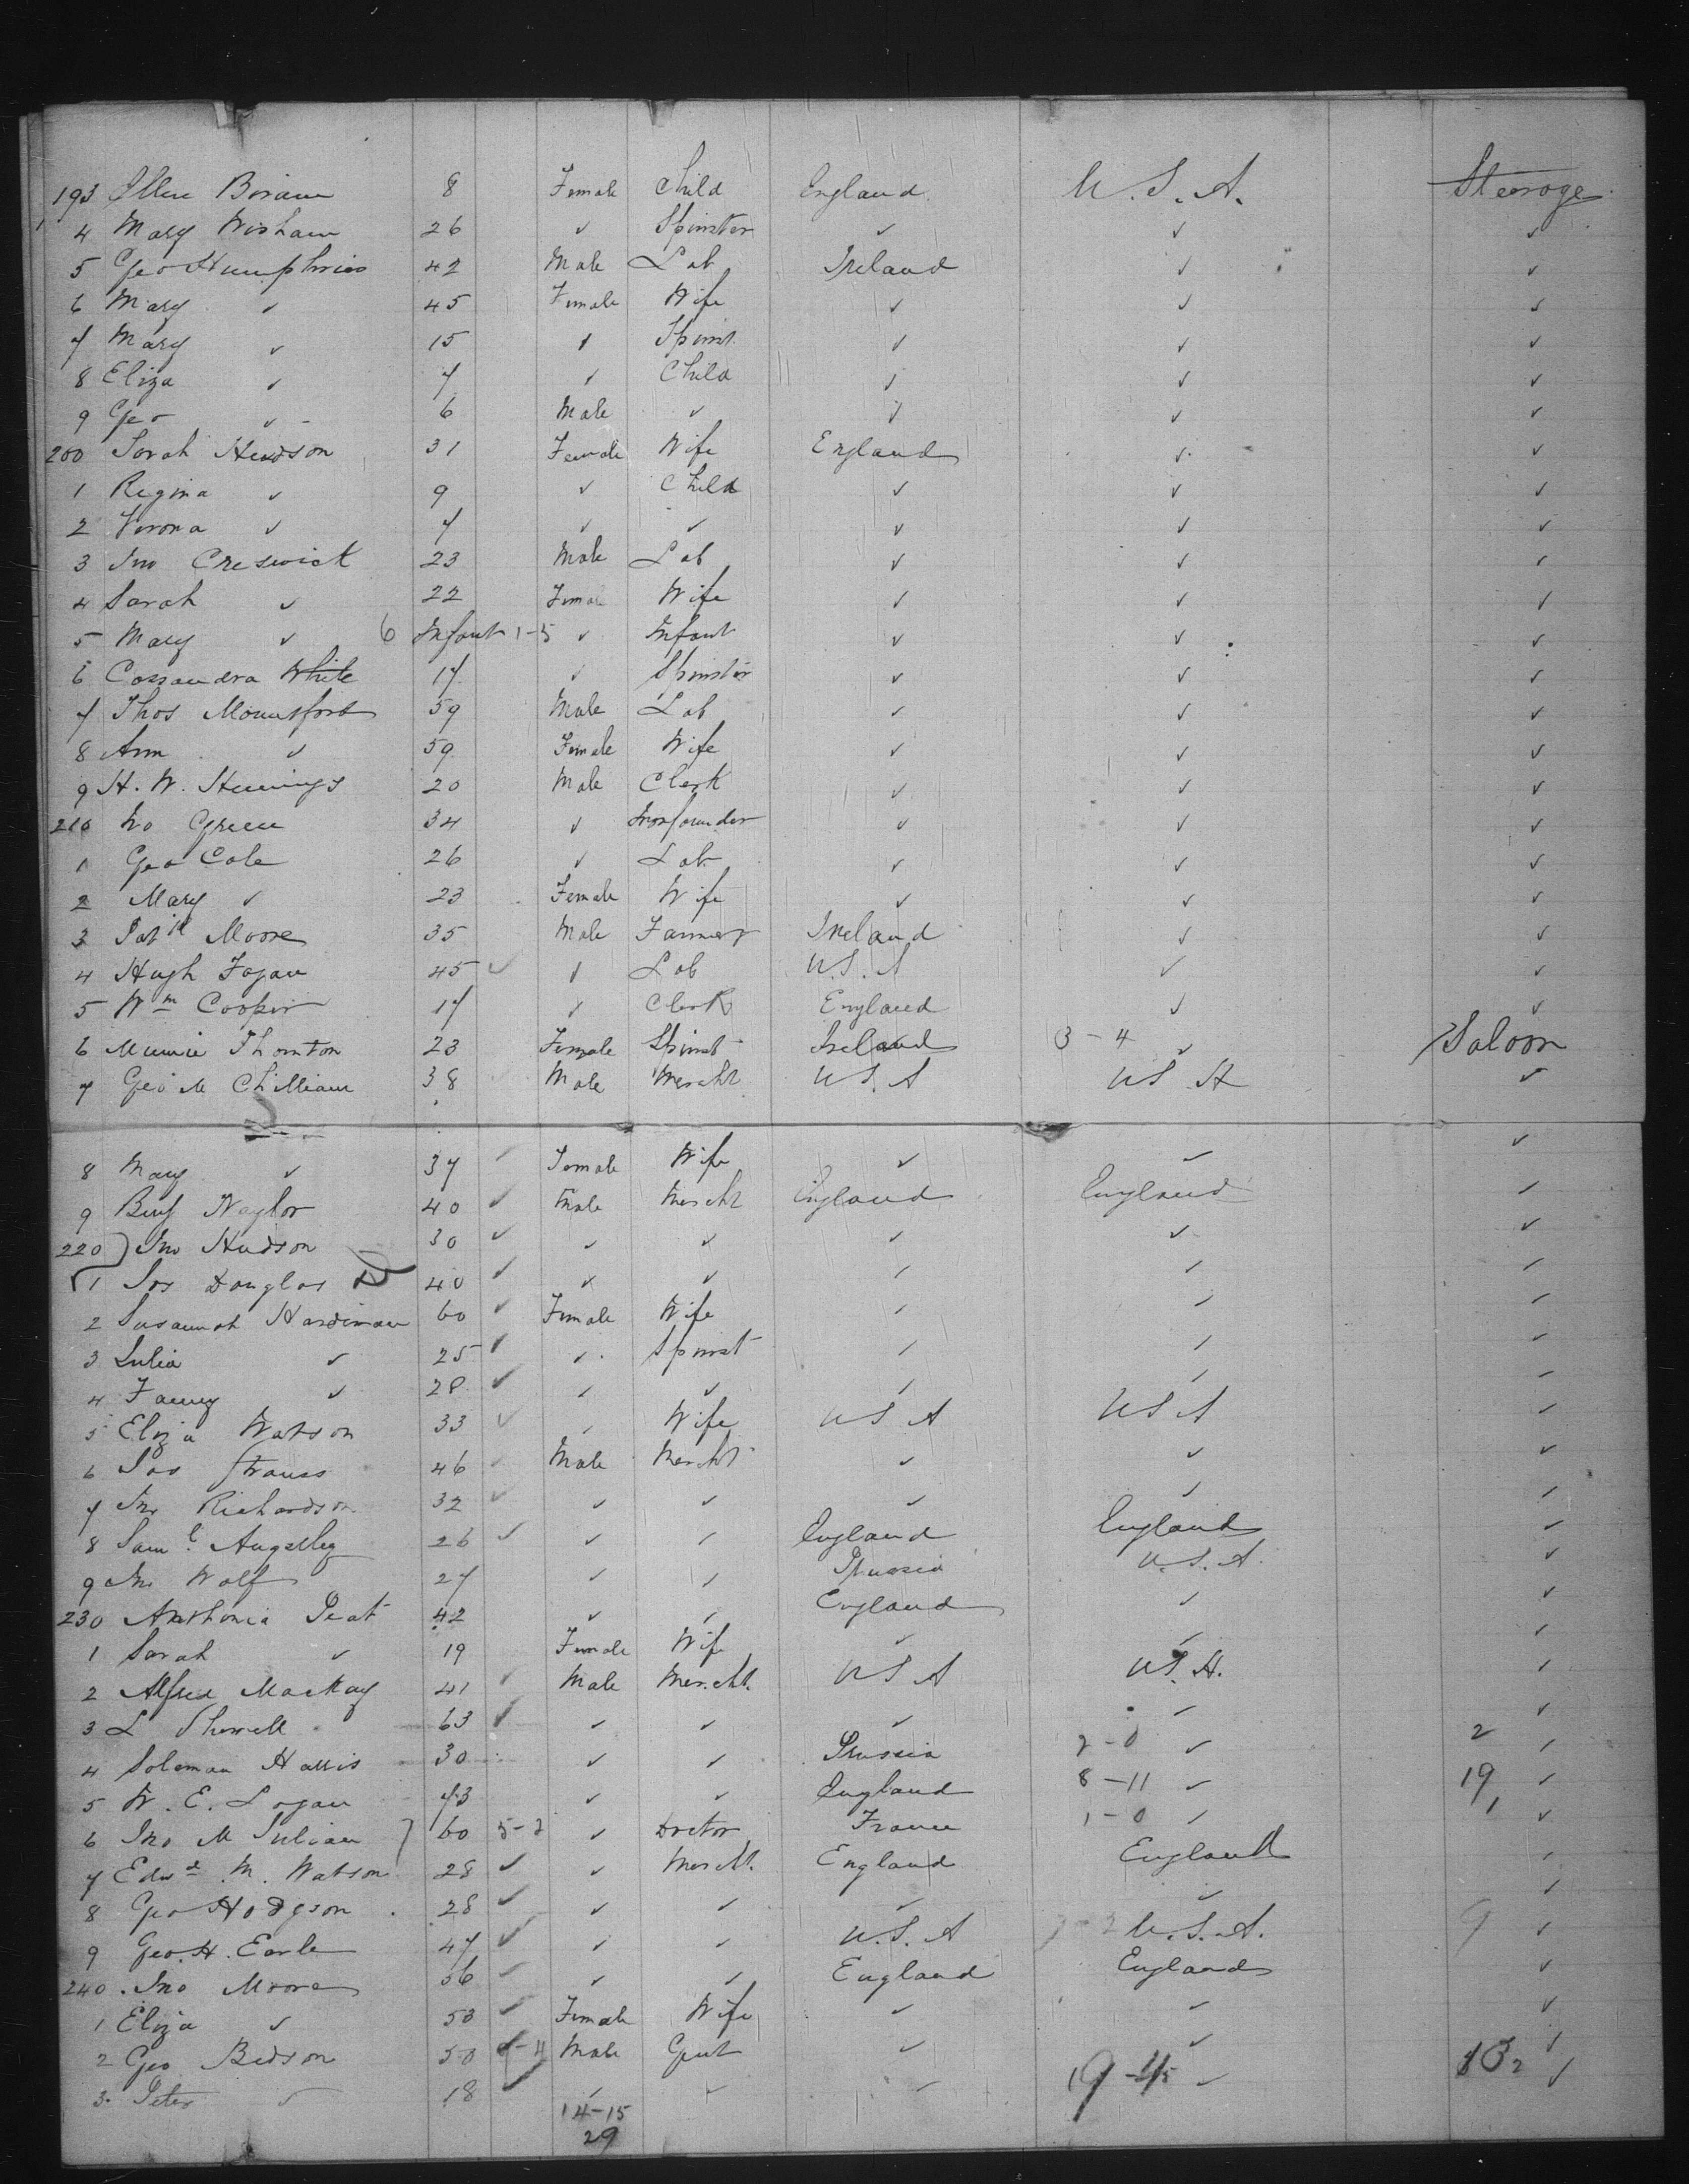 193 Ellen Boram 8 Female Child England U.S.A. Steerage
4 Mary Wisham 26 ✓ Spinster ✓ ✓ ✓
5 Geo Humphries 42 Male Lab Ireland ✓ ✓
6 Mary ✓ 45 Female Wife ✓ ✓ ✓
7 Mary ✓ 15 ✓ Spinst. ✓ ✓ ✓
8 Eliza ✓ 7 ✓ Child ✓ ✓ ✓
9 Geo ✓ 6 Male ✓ ✓ ✓ ✓
200 Sarah Hudson 31 Female Wife England ✓ ✓
1 Regina ✓ 9 ✓ Child ✓ ✓ ✓
2 Verona ✓ 7 ✓ ✓ ✓ ✓ ✓
3 Jno Creswick 23 Male Lab ✓ ✓ ✓
4 Sarah ✓ 22 Female Wife ✓ ✓ ✓
5 Mary ✓ 6 Infant 1-5 ✓ Infant ✓ ✓ ✓
6 Cassandra White 17 ✓ Spinster ✓ ✓ ✓
7 Thos Mounsfort 59 Male Lab ✓ ✓ ✓
8 Ann ✓ 59 Female Wife ✓ ✓ ✓
9 H. W. Hennings 20 Male Clerk ✓ ✓ ✓
210 Green 34 ✓ Ironfounder ✓ ✓ ✓
1 Geo Cole 26 ✓ Lab ✓ ✓ ✓
2 Mary ✓ 23 Female Wife ✓ ✓ ✓
3 Patk Moore 35 Male Farmer Ireland ✓ ✓
4 Hugh Fagan 45 ✓ ✓ Lab U.S.A ✓ ✓
5 Wm Cooper 17 ✓ Clerk England ✓ ✓
6 Minnie Thornton 23 Female Spinst Ireland 3-4 ✓ Saloon
7 Geo Mc Chilliam 38 Male Mercht U.S.A US A ✓
8 Mary ✓ 37 ✓ Female Wife ✓ ✓ ✓
9 Benj Naylor 40 ✓ Male Mercht England England ✓
220 Jno Hudson 30 ✓ ✓ ✓ ✓ ✓ ✓
1 Jos Douglas 40 ✓ ✓ ✓ ✓ ✓ ✓
2 Susannah Hardiman 60 ✓ Female Wife ✓ ✓ ✓
3 Julia ✓ 25 ✓ ✓ Spinst ✓ ✓ ✓
4 Fanny ✓ 28 ✓ ✓ ✓ ✓ ✓ ✓
5 Eliza Watson 33 ✓ ✓ Wife U S A U S A ✓
6 Jos Strauss 46 ✓ Male Mercht ✓ ✓ ✓
7 Jno Richardson 32 ✓ ✓ ✓ ✓ ✓ ✓
8 Saml 26 ✓ ✓ ✓ England England ✓
9 Jno Wolf 27 ✓ ✓ Prussia U.S.A. ✓
230 Peat 42 ✓ ✓ England ✓ ✓
1 Sarah ✓ 19 Female Wife ✓ ✓ ✓
2 Alfred Mackay 41 ✓ Male Mercht. U S A U S A. ✓
3 L 63 ✓ ✓ ✓ ✓ ✓ ✓
4 Soloman Harris 30 ✓ ✓ Prussia 2-0 ✓ 2 ✓
5 W. E. Logan 43 ✓ ✓ England 8-11 ✓ 19 ✓
6 Jno M Julian 60 5-2 ✓ Doctor France 1-0 ✓ 1 ✓
7 Edwd M. Watson 28 ✓ ✓ Mercht. England England ✓
8 Geo Hodgson 28 ✓ ✓ ✓ ✓ ✓ ✓
9 Geo. H. Earle 47 ✓ ✓ ✓ U.S.A U.S.A. 9 ✓
240 Jno Moore 56 ✓ ✓ ✓ England England ✓
1 Eliza ✓ 53 ✓ Female Wife ✓ ✓ ✓
2 Geo Bedson 50 Male Gent ✓ ✓ ✓
3 Peter ✓ 18 ✓ ✓ ✓ ✓ 19-45 ✓ 132 ✓
14-15
29